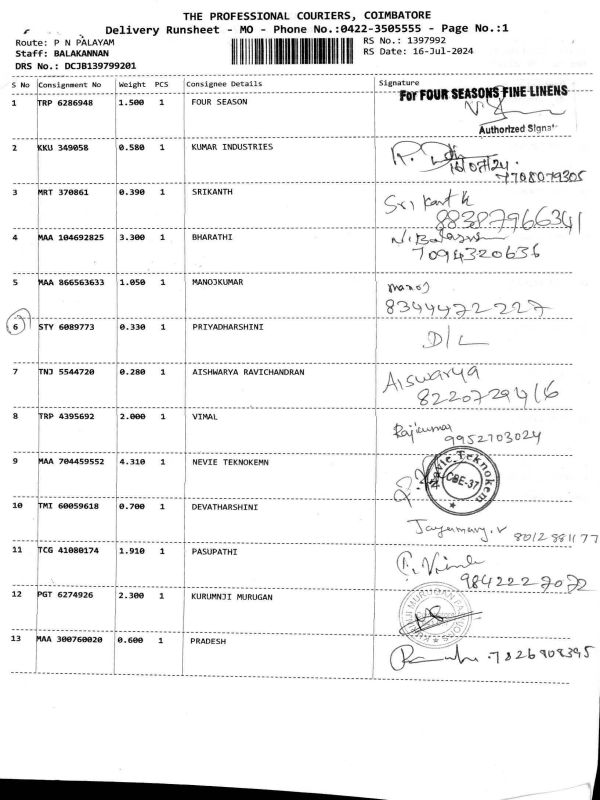 THE PROFESSIONAL COURIERS, COIMBATORE
Delivery Runsheet - MO - Phone No.:0422-3505555 - Page No.:1
Route: P N PALAYAM
RS No.: 1397992
Staff: BALAKANNAN
RS Date: 16-Jul-2024
DRS No.: DCJB139799201
S No Consignment No Weight PCS Consignee Details Signature
For FOUR SEASONS FINE LINENS
1 TRP 6286948 1.500 1 FOUR SEASON
Authorized Signat
2 KKU 349058 0.580 1 KUMAR INDUSTRIES
16/07/24.
7708079305
3 MRT 370861 0.390 1 SRIKANTH Srikanth
88387966341
4 MAA 104692825 3.300 1 BHARATHI
7094320636
5 MAA 866563633 1.050 1 MANOJKUMAR manoj
8344472227
6 STY 6089773 0.330 1 PRIYADHARSHINI D/L
7 TNJ 5544720 0.280 1 AISHWARYA RAVICHANDRAN Aiswarya
8220729416
8 TRP 4395692 2.000 1 VIMAL Rajkumar
9952703024
9 MAA 704459552 4.310 1 NEVIE TEKNOKEMN
Navie Teknokem
CBE-37
10 TMI 60059618 0.700 1 DEVATHARSHINI
8012881177
11 TCG 41080174 1.910 1 PASUPATHI
9842227072
12 PGT 6274926 2.300 1 KURUMNJI MURUGAN
13 MAA 300760020 0.600 1 PRADESH
7826908395